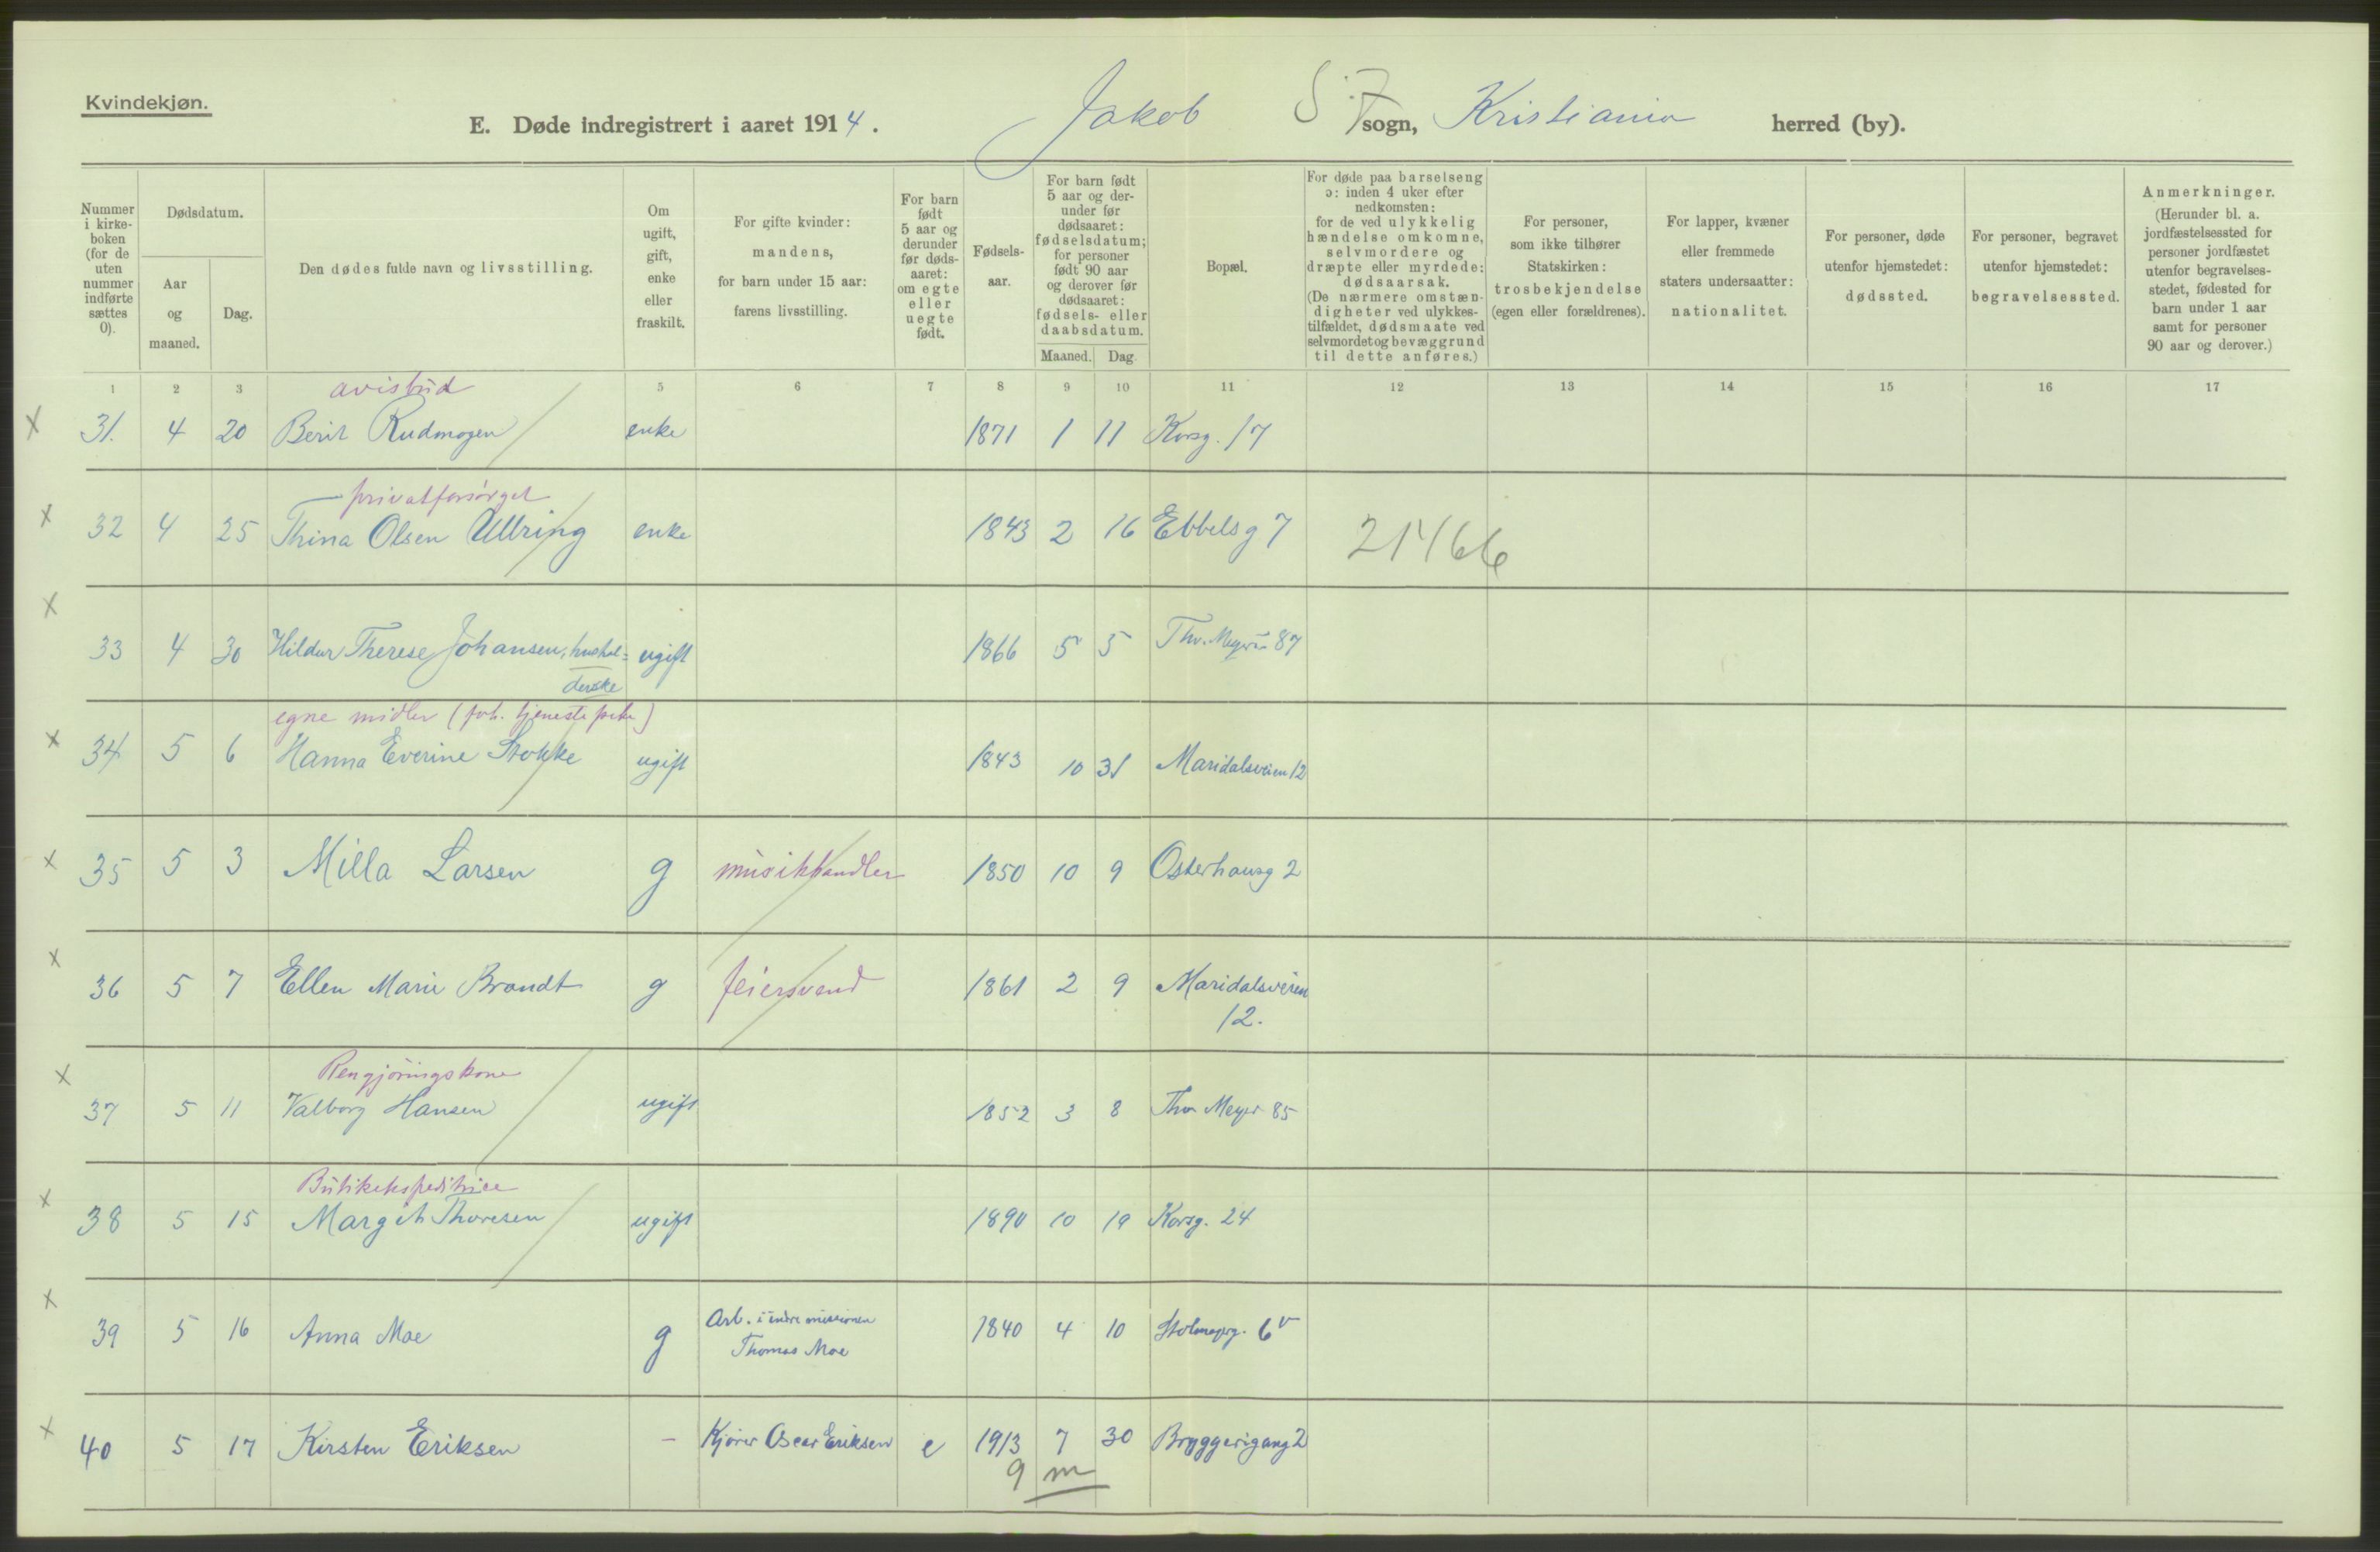 Kvindekjøn.
E. Døde indregistrert i aaret 1914. Jakob S. 7 sogn, Kristiania herred (by).
Nummer i kirke-boken (for de uten nummer indførte sættes 0).
Dødsdatum.
Aar og maaned.
Dag.
Den dødes fulde navn og livsstilling.
Om ugift, gift, enke eller fraskilt.
For gifte kvinder: mandens, for barn under 15 aar: farens livsstilling.
For barn født 5 aar og derunder før døds-aaret: om egte eller uegte født.
Fødsels-aar.
For barn født 5 aar og der-under før dødsaaret: fødselsdatum; for personer født 90 aar og derover før dødsaaret: fødsels- eller daabsdatum.
Maaned. Dag.
Bopæl.
For døde paa barselseng ɔ: inden 4 uker efter nedkomsten: for de ved ulykkelig hændelse omkomne, selvmordere og dræpte eller myrdede: dødsaarsak. (De nærmere omstæn-digheter ved ulykkes-tilfældet, dødsmaate ved selvmordet og bevæggrund til dette anføres.)
For personer, som ikke tilhører Statskirken: trosbekjendelse (egen eller forældrenes).
For lapper, kvæner eller fremmede staters undersaatter: nationalitet.
For personer, døde utenfor hjemstedet: dødssted.
For personer, begravet utenfor hjemstedet: begravelsessted.
Anmerkninger. (Herunder bl. a. jordfæstelsessted for personer jordfæstet utenfor begravelses-stedet, fødested for barn under 1 aar samt for personer 90 aar og derover.)
1 2 3 5 6 7 8 9 10 11 12 13 14 15 16 17
avisbud
x 31. 4 20 Berit Rudmogen enke 1871 1 11 Korsg. 17
privatforsørget
x 32 4 25 Thina Olsen Ullring enke 1843 2 16 Ebbelsg 7 21466
x 33 4 30 Hildur Therese Johansen, hushol= ugift 1866 5 5 Thv. Meyers 87
derske
egne midler (forh. tjenestepike)
x 34 5 6 Hanna Everine Stokke ugift 1843 10 31 Maridalsveien 12
x 35 5 3 Milla Larsen g musikhandler 1850 10 9 Osterhausg 2
x 36 5 7 Ellen Marie Brandt g feiersvend 1861 2 9 Maridalsveien
12.
Rengjøringskone
x 37 5 11 Valborg Hansen ugift 1852 3 8 Thv Meyer 85
Butikekspeditrice
x 38 5 15 Margit Thoresen ugift 1890 10 19 Korsg. 24
x 39 5 16 Anna Moe g Arb. i indre missionen 1840 4 10 6
Thomas Moe
x 40 5 17 Kirsten Eriksen - Kjører Oscar Eriksen e 1913 7 30 Bryggerigang 2
9 m